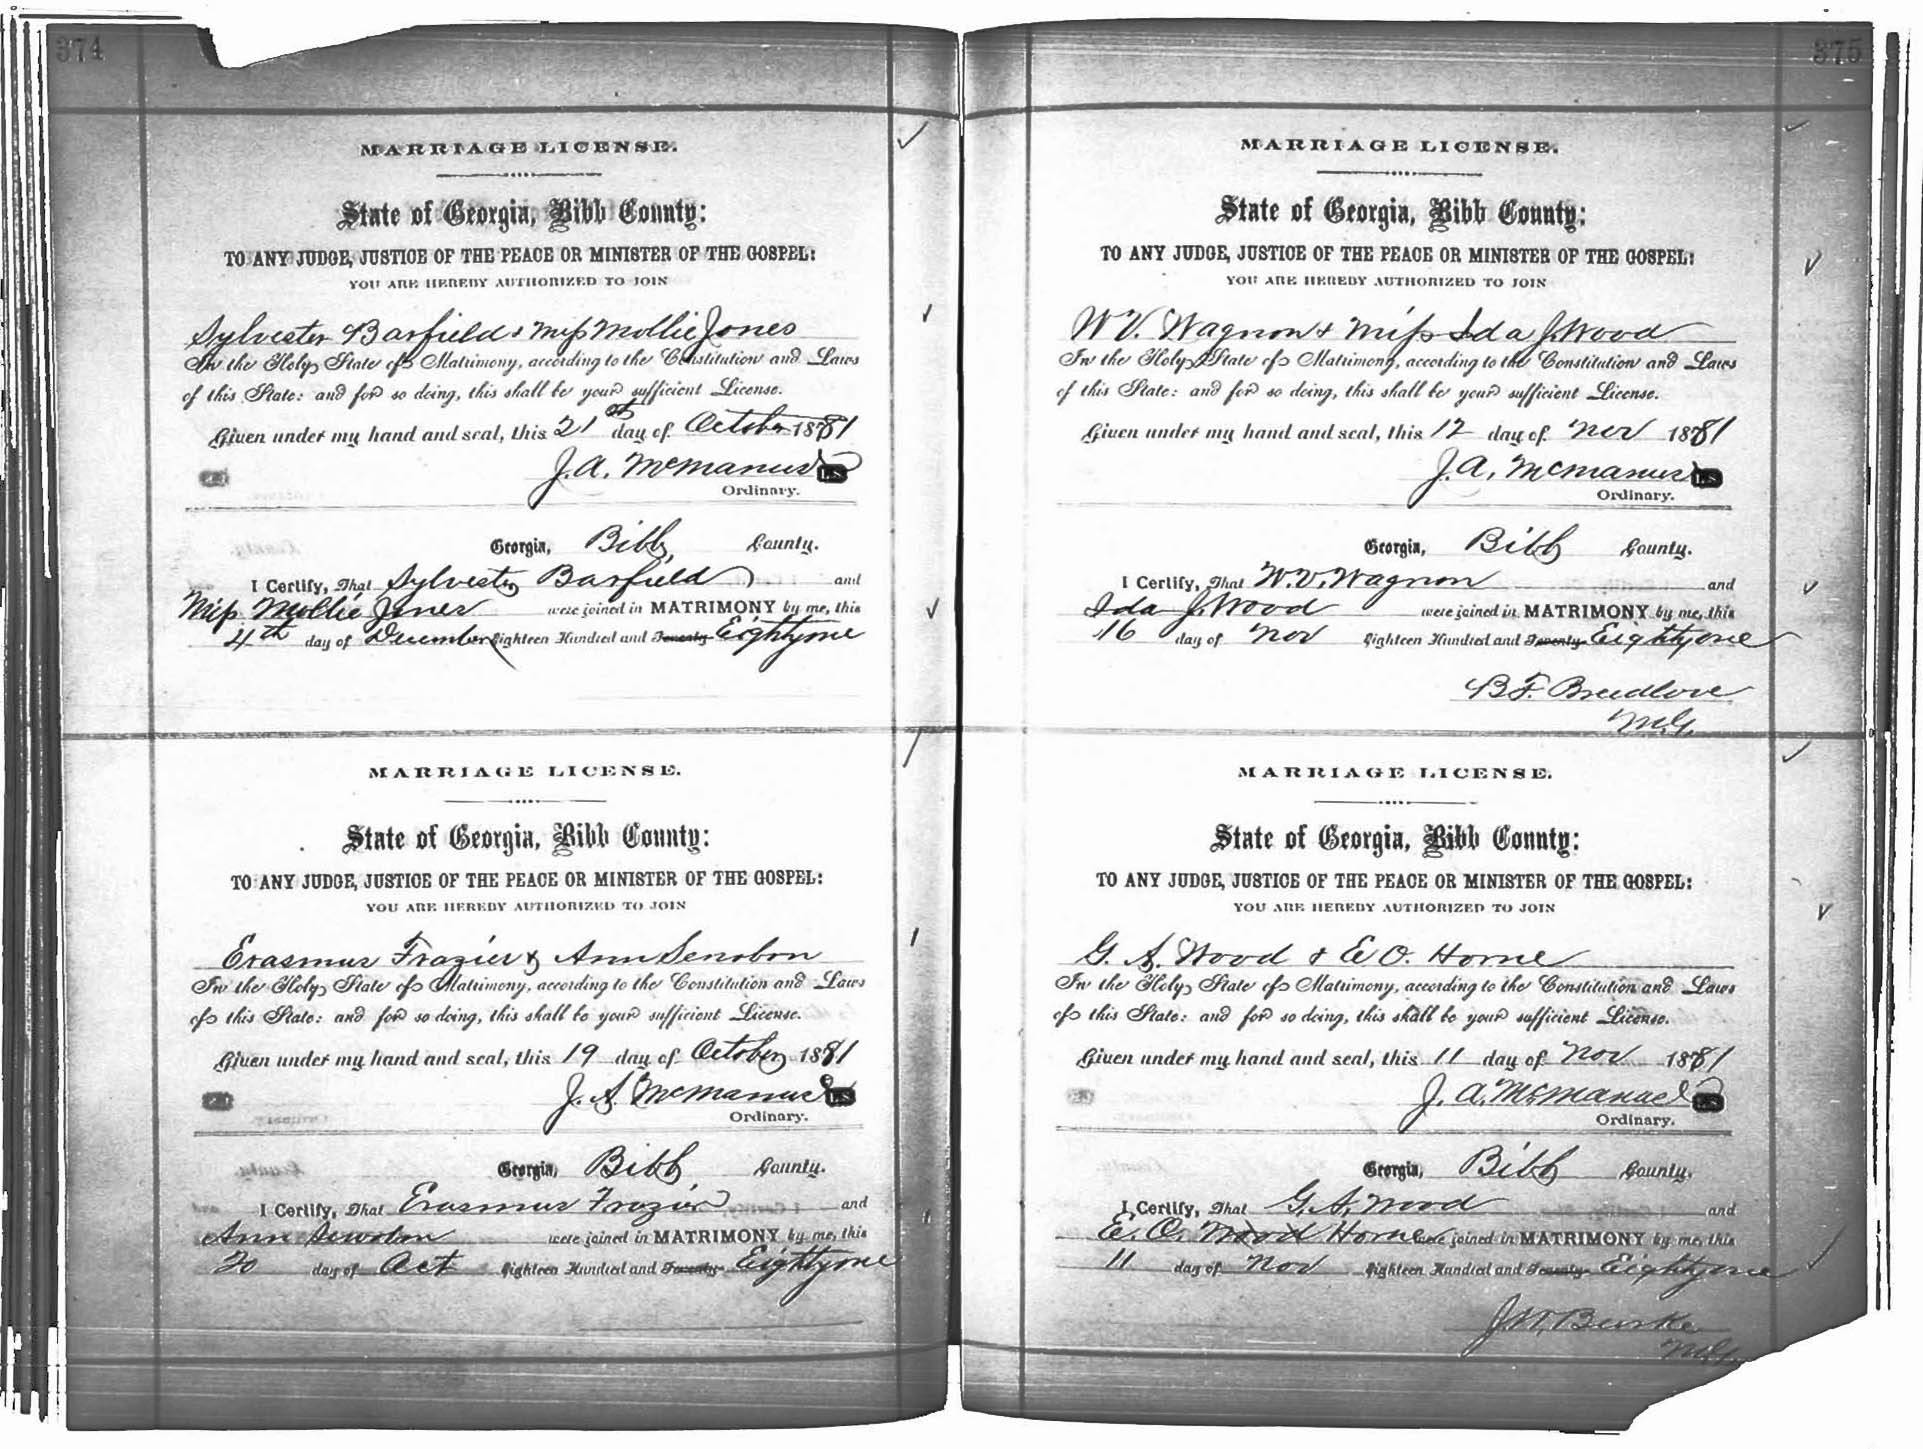 374
MARRIAGE LICENSE.
State of Georgia, Bibb County:
TO ANY JUDGE, JUSTICE OF THE PEACE OR MINISTER OF THE GOSPEL:
YOU ARE HEREBY AUTHORIZED TO JOIN
Sylvester Barfield & Miss Mollie Jones
In the Holy State of Matrimony, according to the Constitution and Laws
of this State: and for so doing, this shall be your sufficient License.
Given under my hand and seal, this 21st day of October 1881
J. A. McManus L.S.
Ordinary.
Georgia, Bibb County.
I Certify, That Sylvester Barfield and
Miss Mollie Jones were joined in MATRIMONY by me, this
4th day of December Eighteen Hundred and Seventy Eightyone
MARRIAGE LICENSE.
State of Georgia, Bibb County:
TO ANY JUDGE, JUSTICE OF THE PEACE OR MINISTER OF THE GOSPEL:
YOU ARE HEREBY AUTHORIZED TO JOIN
Erasmus Frazier & Ann
In the Holy State of Matrimony, according to the Constitution and Laws
of this State: and for so doing, this shall be your sufficient License.
Given under my hand and seal, this 19 day of October 1881
J. A. McManus L.S.
Ordinary.
Georgia, Bibb County.
I Certify, That Erasmus Frazier and
Ann were joined in MATRIMONY by me, this
20 day of Oct Eighteen Hundred and Seventy Eightyone
375
MARRIAGE LICENSE.
State of Georgia, Bibb County:
TO ANY JUDGE, JUSTICE OF THE PEACE OR MINISTER OF THE GOSPEL:
YOU ARE HEREBY AUTHORIZED TO JOIN
W. V. Wagnon & Miss Ida J. Wood
In the Holy State of Matrimony, according to the Constitution and Laws
of this State: and for so doing, this shall be your sufficient License.
Given under my hand and seal, this 12 day of Nov 1881
J. A. McManus L.S.
Ordinary.
Georgia, Bibb County.
I Certify, That W. V. Wagnon and
Ida J. Wood were joined in MATRIMONY by me, this
16 day of Nov Eighteen Hundred and Seventy Eightyone
B. F. Breedlove
M.G.
MARRIAGE LICENSE.
State of Georgia, Bibb County:
TO ANY JUDGE, JUSTICE OF THE PEACE OR MINISTER OF THE GOSPEL:
YOU ARE HEREBY AUTHORIZED TO JOIN
G. A. Wood & E O. Horne
In the Holy State of Matrimony, according to the Constitution and Laws
of this State: and for so doing, this shall be your sufficient License.
Given under my hand and seal, this 11 day of Nov 1881
J. A. McManus L.S.
Ordinary.
Georgia, Bibb County.
I Certify, That G. A. Wood and
E. O. Wood Horne were joined in MATRIMONY by me, this
11 day of Nov Eighteen Hundred and Seventy Eightyone
J. W. Burke
M.G.